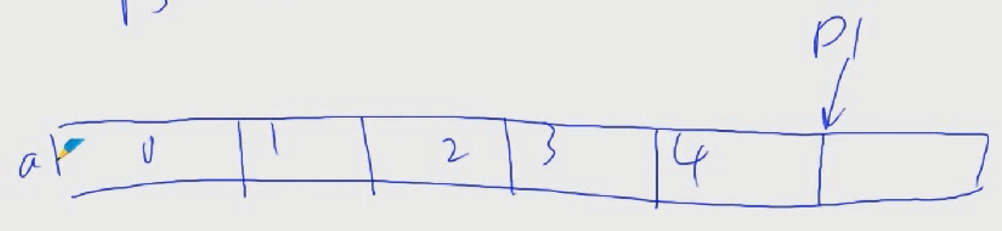 p1
a 0 1 2 3 4